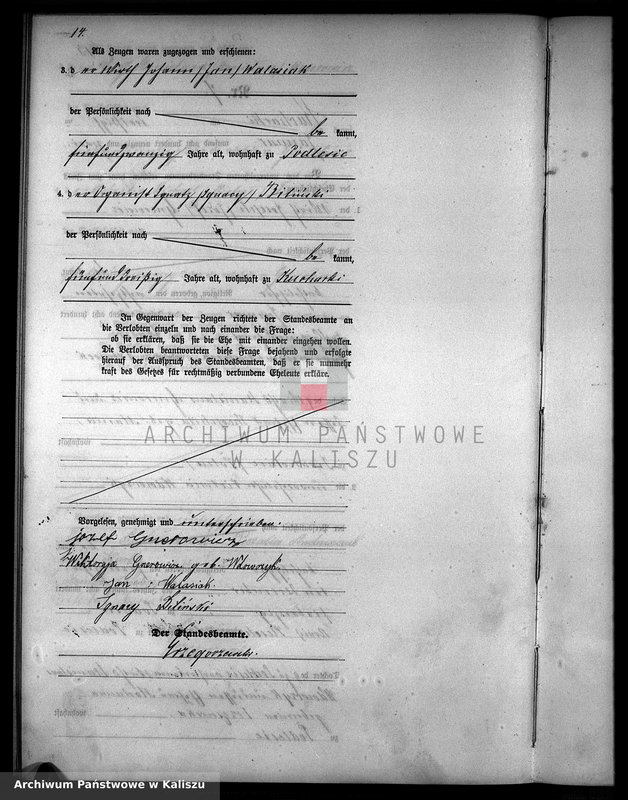 14.
Als Zeugen waren zugezogen und erschienen:
3. der Wirth Johann /Jan/ Walasiak
der Persönlichkeit nach
be kannt,
fünfundzwanzig Jahre alt, wohnhaft zu Podlesie
4. der Organist Ignatz /Ignacy/ Biliński
der Persönlichkeit nach
be kannt,
fünfunddreißig Jahre alt, wohnhaft zu
In Gegenwart der Zeugen richtete der Standesbeamte an
die Verlobten einzeln und nach einander die Frage:
ob sie erklären, daß sie die Ehe mit einander eingehen wollen.
Die Verlobten beantworteten diese Frage bejahend und erfolgte
hierauf der Ausspruch des Standesbeamten, daß er sie nunmehr
kraft des Gesetzes für rechtmäßig verbundene Eheleute erkläre.
ARCHIWUM PAŃSTWOWE
W KALISZU
Vorgelesen, genehmigt und unterschrieben.
Józef
Wiktoryja geb.
Jan Walasiak
Ignacy Biliński
Der Standesbeamte.
Archiwum Państwowe w Kaliszu